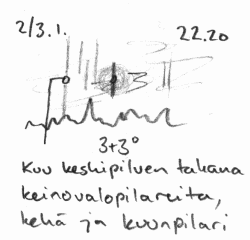 2/3.1. 22.20
3+3°
Kuu keskipilven takana
keinovalopilareita,
kehä ja kuunpilari